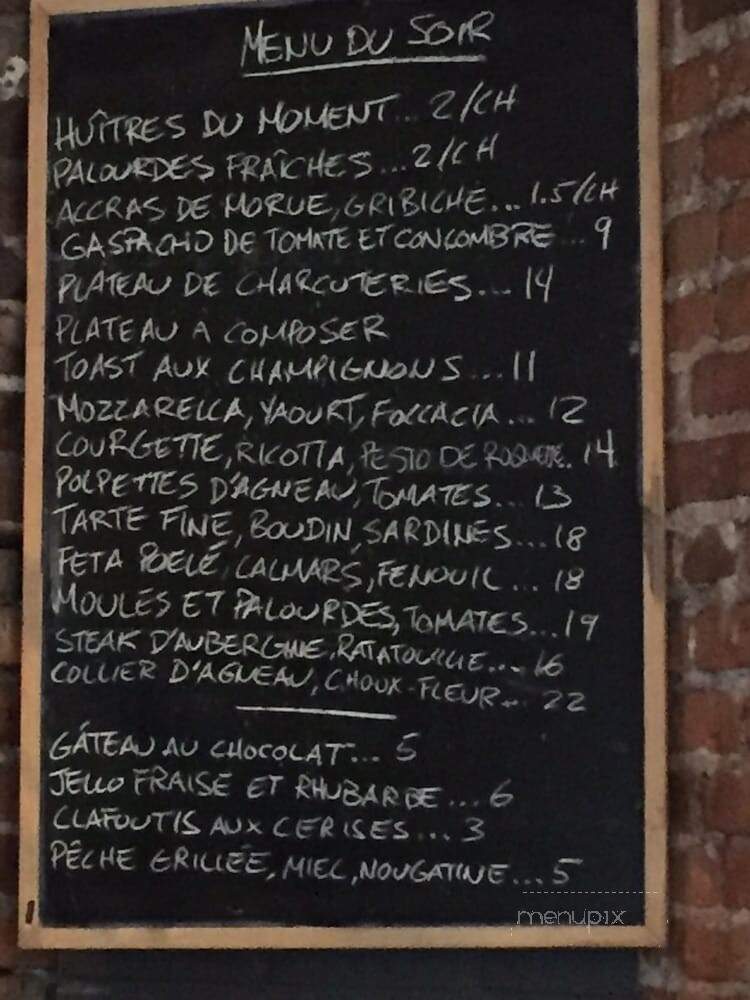 MENU DU SOIR
HUÎTRES DU MOMENT... 2/CH
PALOURDES FRAÎCHES... 2/CH
ACCRAS DE MORUE, GRIBICHE... 1.5/CH
GASPACHO DE TOMATE ET CONCOMBRE... 9
PLATEAU DE CHARCUTERIES... 14
PLATEAU A COMPOSER
TOAST AUX CHAMPIGNONS... 11
MOZZARELLA, YAOURT, FOCCACIA... 12
COURGETTE, RICOTTA, PESTO DE ROQUETTE. 14
POLPETTES D'AGNEAU, TOMATES... 13
TARTE FINE, BOUDIN, SARDINES... 18
FETA POELÉ, CALMARS, FENOUIL... 18
MOULES ET PALOURDES, TOMATES... 19
STEAK D'AUBERGINE, RATATOUILLE... 16
COLLIER D'AGNEAU, CHOUX-FLEUR... 22
GÂTEAU AU CHOCOLAT... 5
JELLO FRAISE ET RHUBARBE... 6
CLAFOUTIS AUX CERISES... 3
PÊCHE GRILLÉE, MIEL, NOUGATINE... 5
menupix